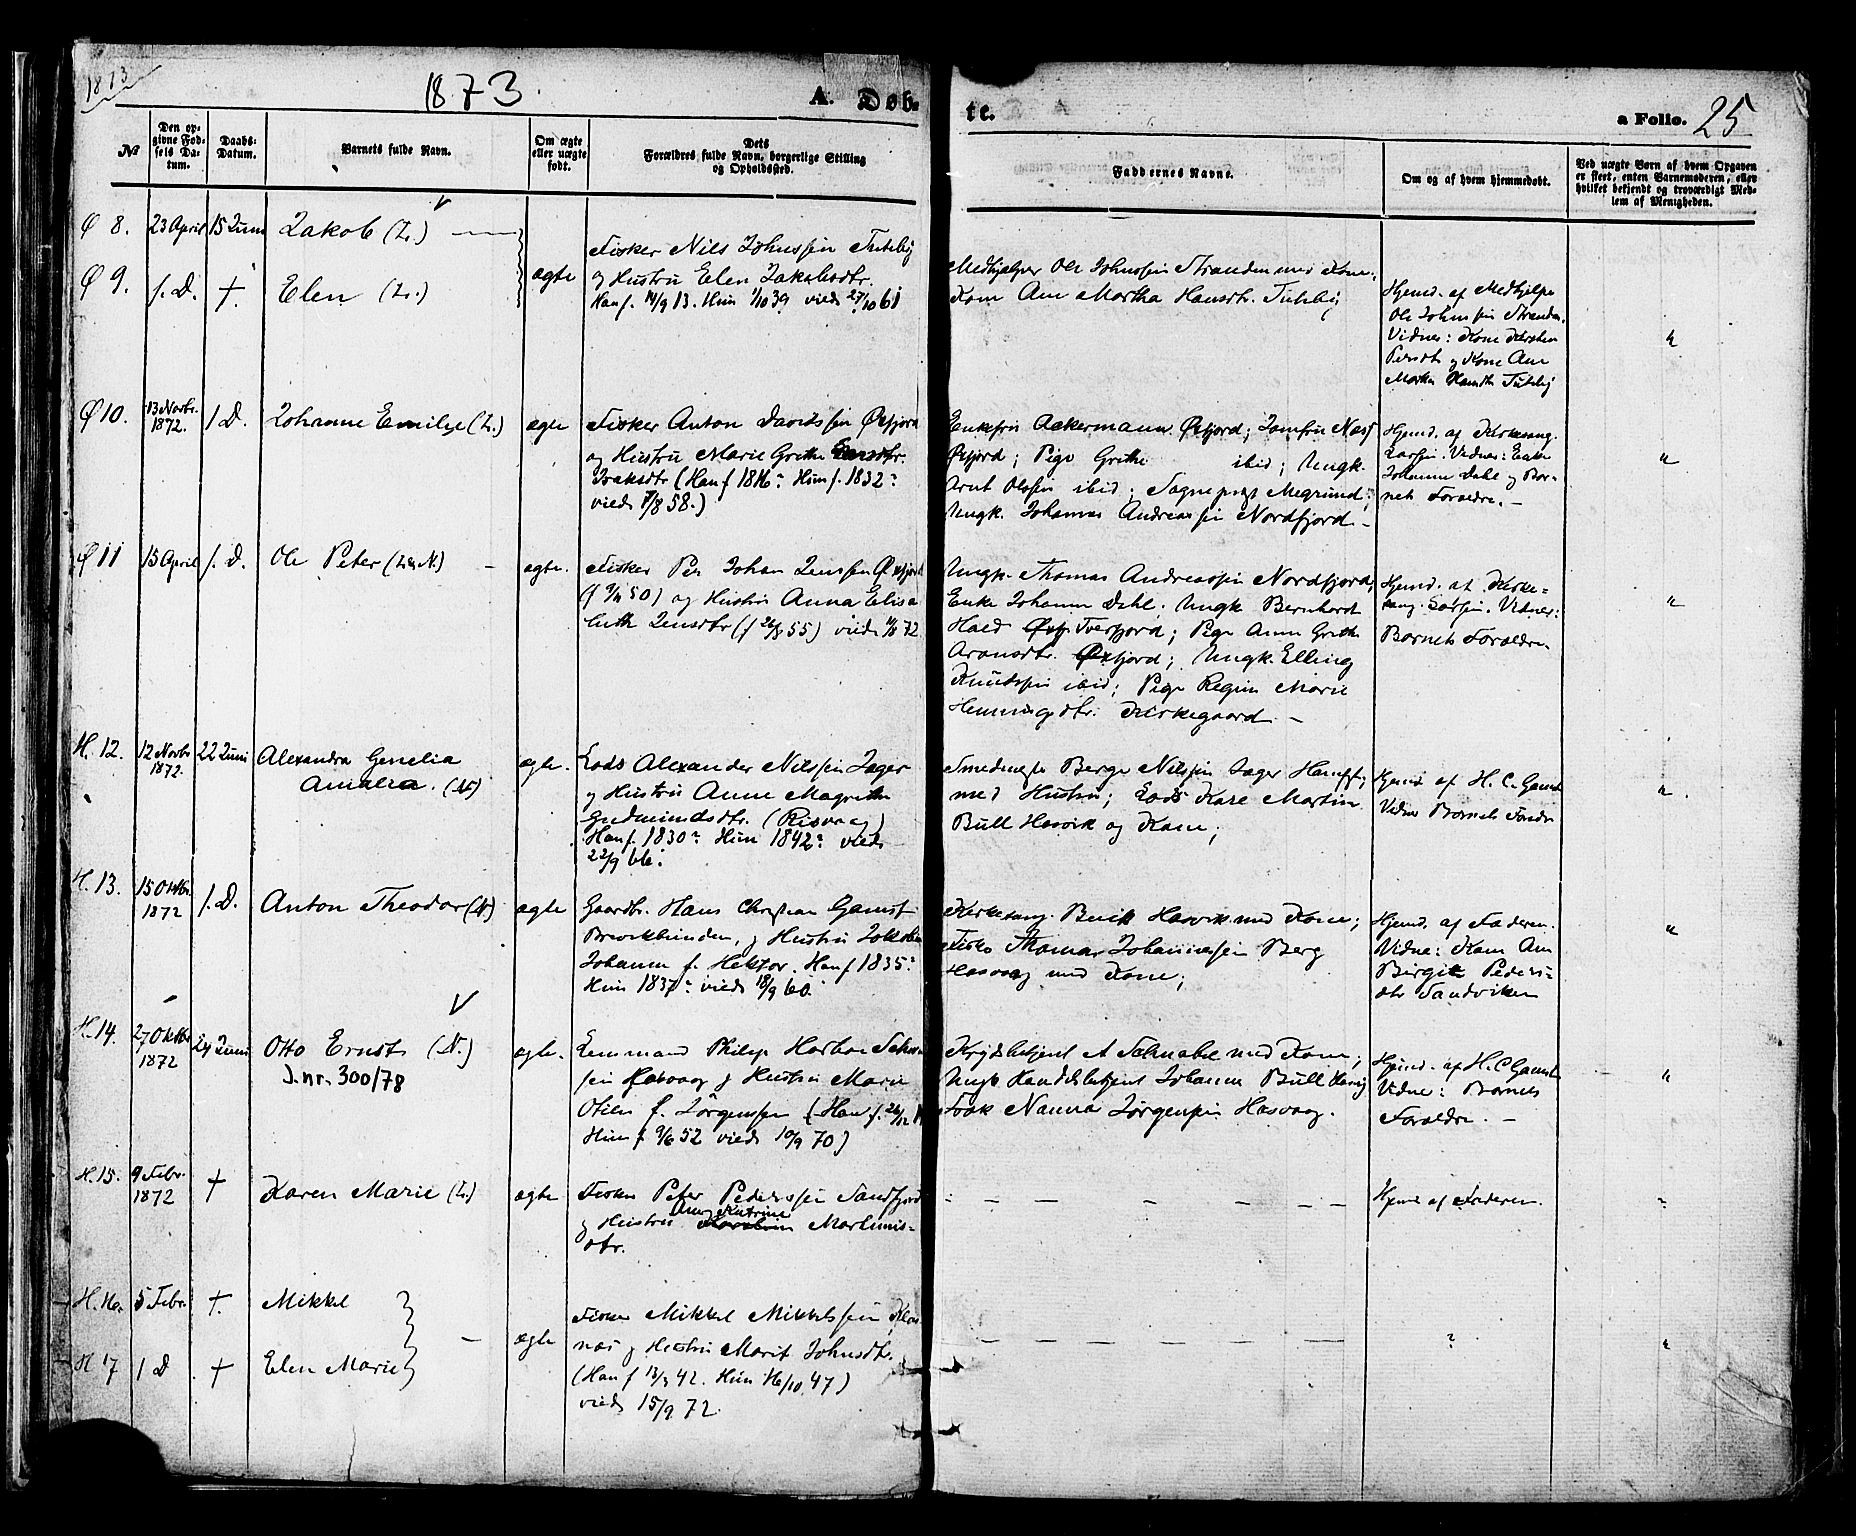 1873
1873.
A. Døb-
te.
a Folio. 25
№
Den op-
givne Fød-
sels Da-
tum.
Daabs-
Datum.
Barnets fulde Navn.
Om ægte
eller uægte
født.
Dets
Forældres fulde Navn, borgerlige Stilling
og Opholdssted.
Faddernes Navne.
Om og af hvem hjemmedøbt.
Ved uægte Børn af hvem Opgaven
er skeet, enten Barnemoderen, eller
hvilket bekjendt og troværdigt Med-
lem af Menigheden.
Ø 8. 23 April 15 Juni Jakob (L.)
Ø 9. s. D. +. Elen (L.)
ægte
Fisker Nils Johnssen
og Hustru Elen Jakobsdtr.
Han f. 14/9 13. Hun 1/10 39 viede 27/10 61
Medhjælper Ole Johnssen Stranden med Kone;
Kone Ane Martha Hansdtr.
Hjemd. af Medhjelper
Ole Johnssen Stranden.
Vidner: Kone Kirsten
Persdtr og Kone Ane
Martha Hansdtr
"
Ø 10. 13 Novbr. 1872. s D. Johanne Emilie (L.) ægte
Fisker Anton Davidssen Øxfjord
og Hustru Marie Grethe
Isaksdtr (Han f 1816? Hun f. 1832?
viede 7/8 58.)
Enkefru Ackermann Øxfjord; Jomfru
Øxfjord; Pige Grethe ibid; Ungk.
Arnt Olssen ibid;
Ungk. Johannes Andreassen Nordfjord. -
Hjemd. af Kirkesang.
Larssen. Vidner: Enke
Johanne Dahl og Bar-
nets Forældre. -
"
Ø 11 13 April s. D. Ole Peter (L & N.) - ægte.
Fisker Per Johan Jenssen Øxfjord
(f 9/11 50) og Hustru Anna Elisa
beth Jensdtr (f 26/8 55) viede 11/8 72
Ungk. Thomas Andreassen Nordfjord;
Enke Johanne Dahl. Ungk Bernhard
Hald Tverfjord; Pige Anne Grethe
Aronsdtr. Øxfjord; Ungk. Elling
Knudssen ibid; Pige Regine Marie
Henningsdtr. Kirkegaard. -
Hjemd. af Kirke-
sang. Larssen. Vidner:
Barnets Forældre.
"
H. 12. 12 Novbr 1872. 22 Juni Alexandra Genelia
Amalia. (N) ægte.
Lods Alexander Nilssen Jæger
og Hustru Anne Magrethe
Gudmundsdtr. (Risvaag)
Han f. 1830? Hun 1842? viede
22/9 66.
Smedmester Berge Nilssen Jæger
med Hustru; Lods Kare Martin
Bull Hasvik og Kone;
Hjemd. af H. C. Gamst
Vidner Barnets Forældre
"
H. 13. 15 Oktbr. 1872 s. D. Anton Theodor (N) ægte
Gaardbr. Hans Christian Gamst
Breivikbunden, og Hustru Jakobine
Johanne f. Hektor. Han f 1835?
Hun 1837? viede 18/9 60.
Kirkesang. Buck Hasvik med Kone;
Fisker Thomas Johannessen Berg
Hasvaag med Kone;
Hjemd. af Faderen.
Vidne: Kone Ane
Birgit Peders-
dtr Sandviken
"
H. 14. 27 Oktbr 1872 24 Juni Otto Ernst (N.) ægte.
J.nr. 300/78
Lensmand Philip
Hasvaag og Hustru Marie
Otilie f. Jörgenssen (Han f. 26/12
Hun f 9/6 52 viede 10/9 70)
A Schnabel med Kone;
Ungk Handelsbetjent Johannes Bull Hasvig
Frøk Nanna Jörgenssen Hasvaag.
Hjemd. af H. C Gamst
Vidne: Barnets
Forældre. -
"
H. 15. 9 Febr. 1872 + Karen Marie (L.) ægte
Fisker Peter Pederssen Sandfjord
og Hustru Ane Katrine Martinus-
dtr.
Hjemd af Faderen.
"
H. 16. 5 Febr. +. Mikkel
H 17 s D + Elen Marie
- ægte
Fisker Mikkel Mikkelssen
næs og Hustru Marit Johnsdtr.
(Han f 13/3 42. Hun 16/10 47)
viede 15/9 72
?
"